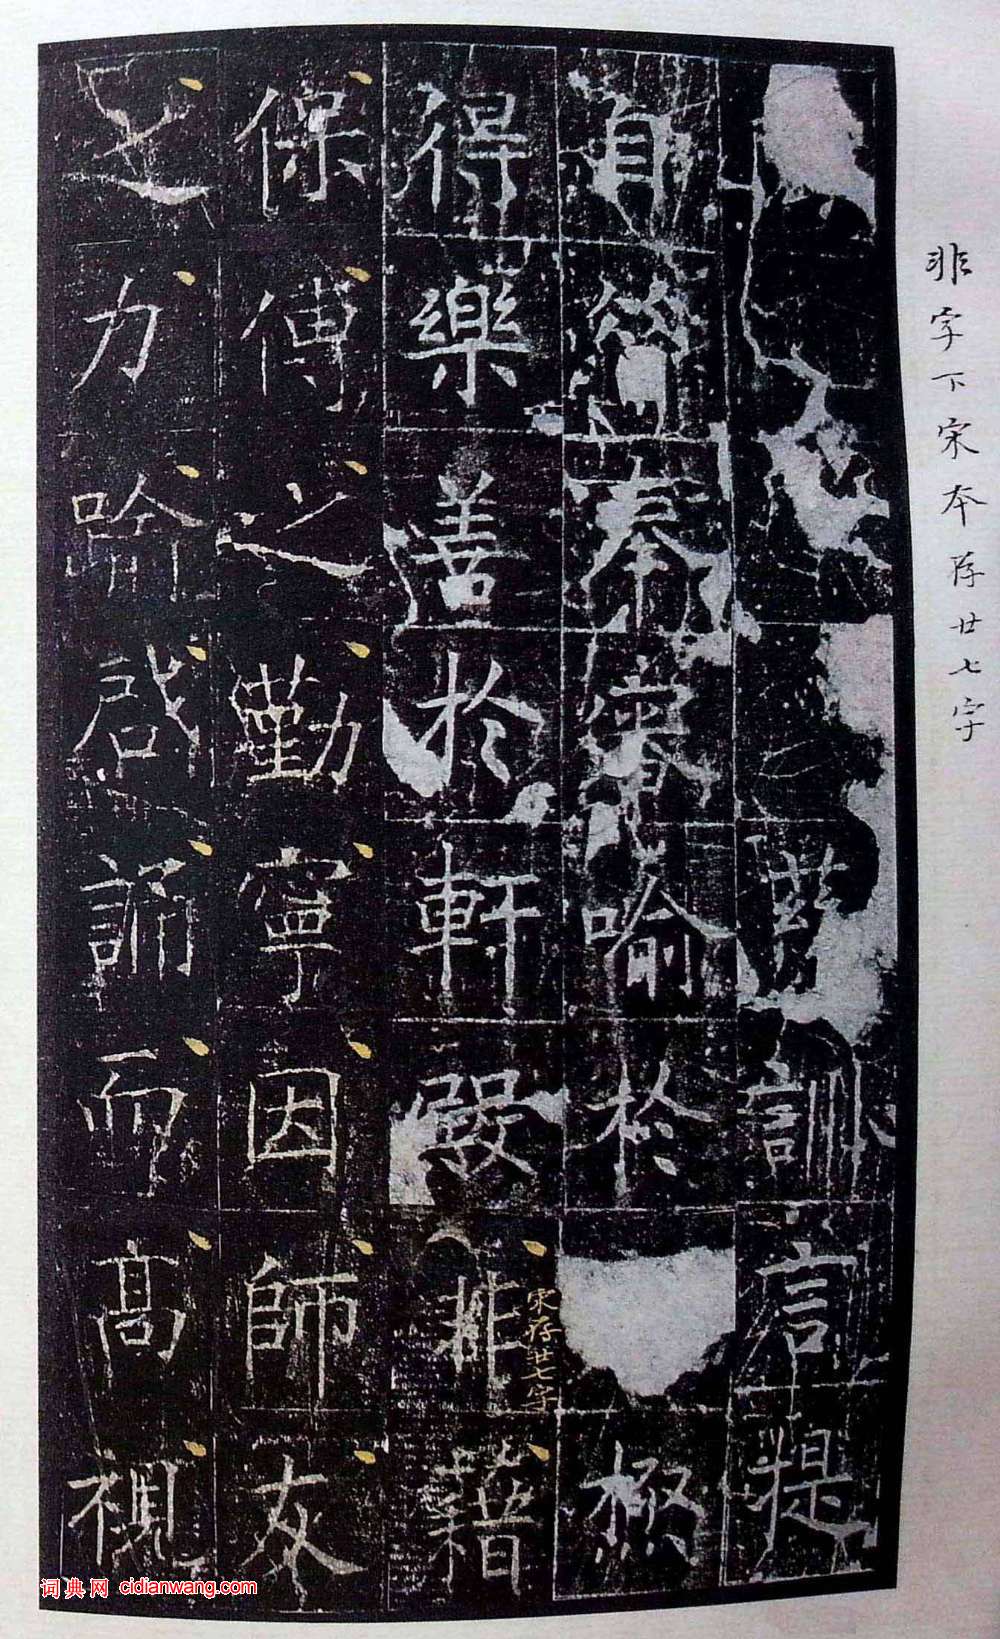 非字下宋本存廿七字
訓言提
自奉睿喻於極
得樂善於軒非藉
宋存廿七字
保傅之勤寧因師友
之力喻啟誦而高視
词典网 cidianwang.com